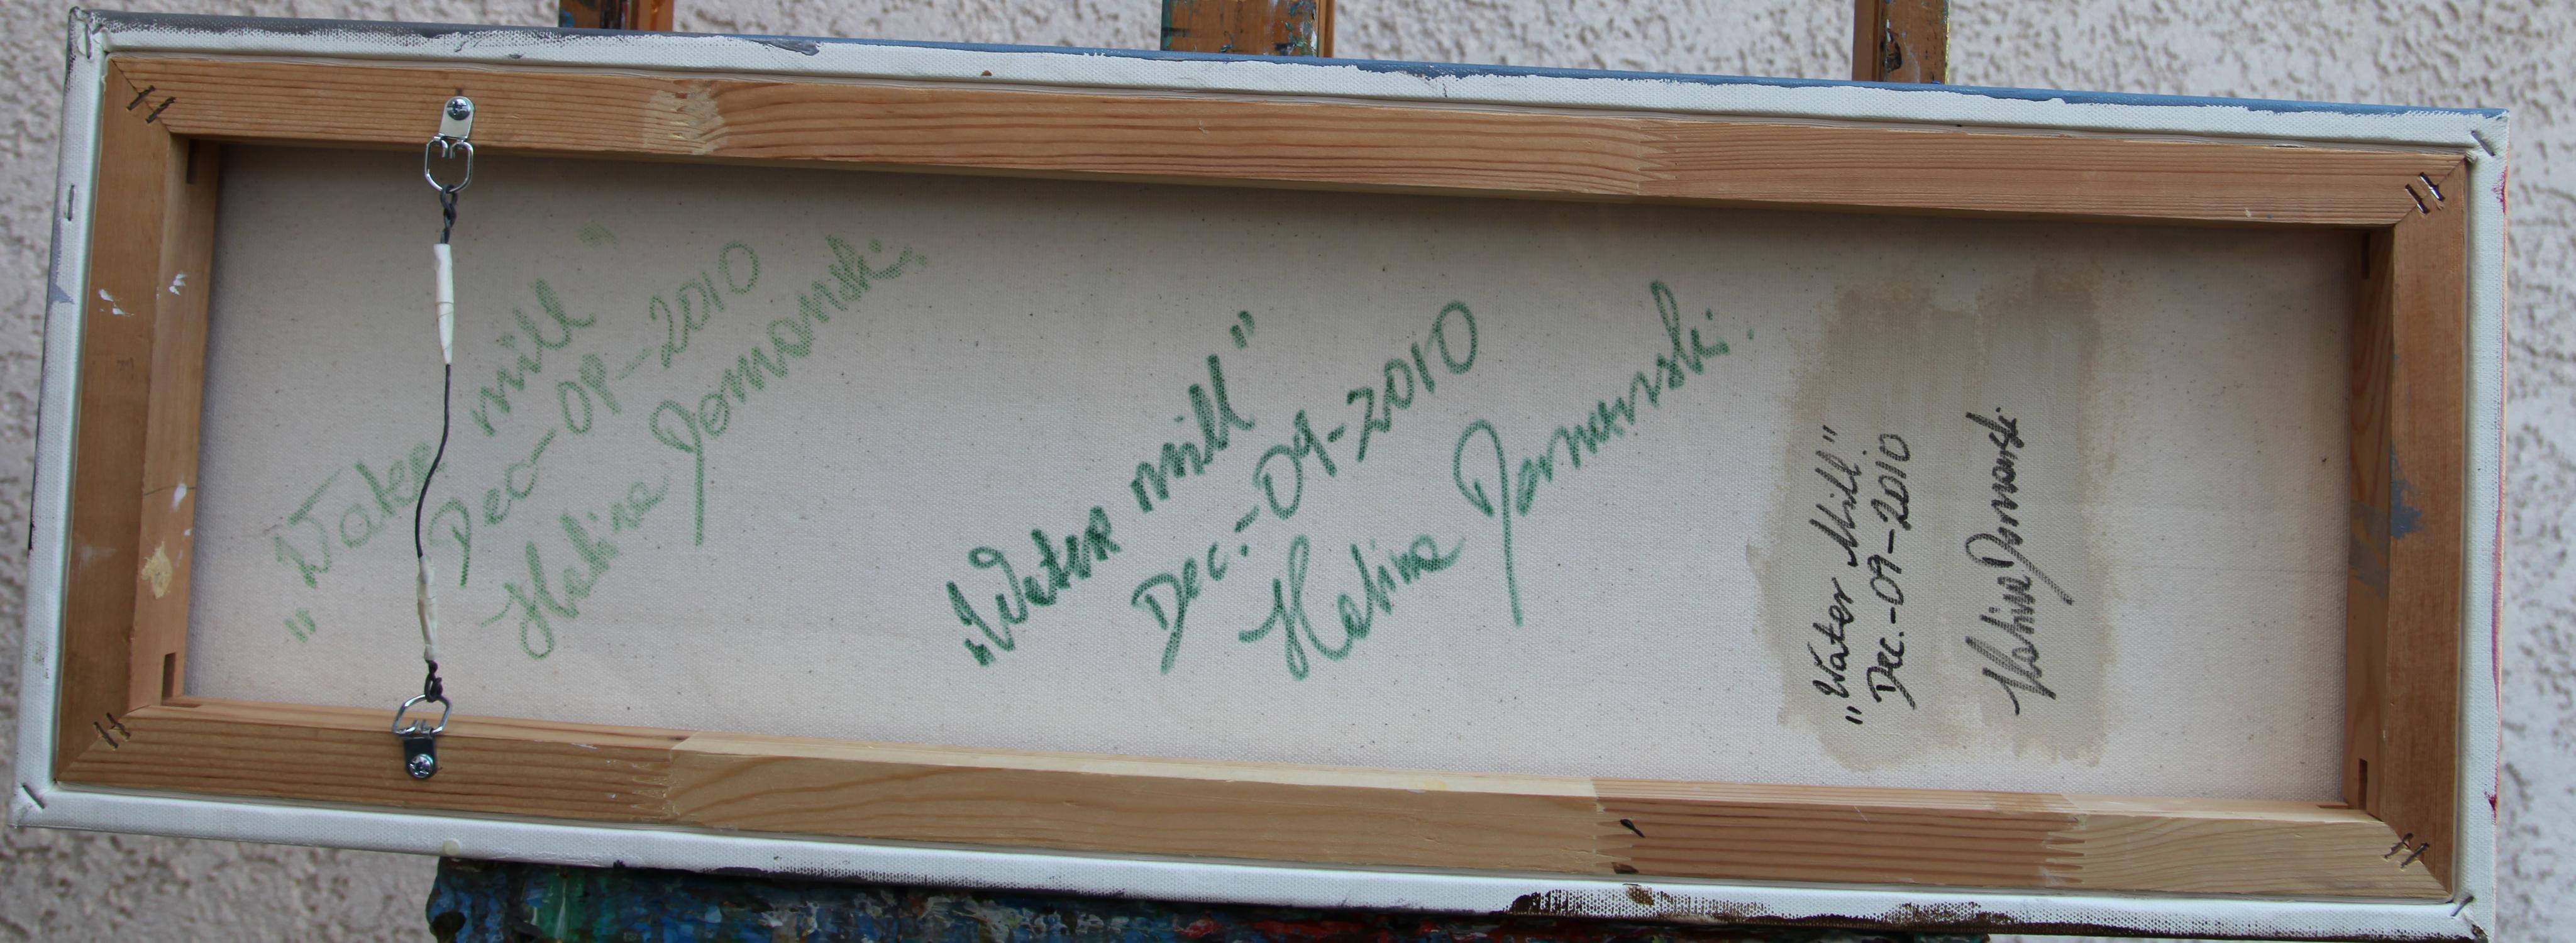 „Water mill"
Dec-09-2010
Halina Domanski.
„Water mill"
Dec.-09-2010
Halina Domanski.
„Water Mill"
Dec.-09-2010
Halina Domanski